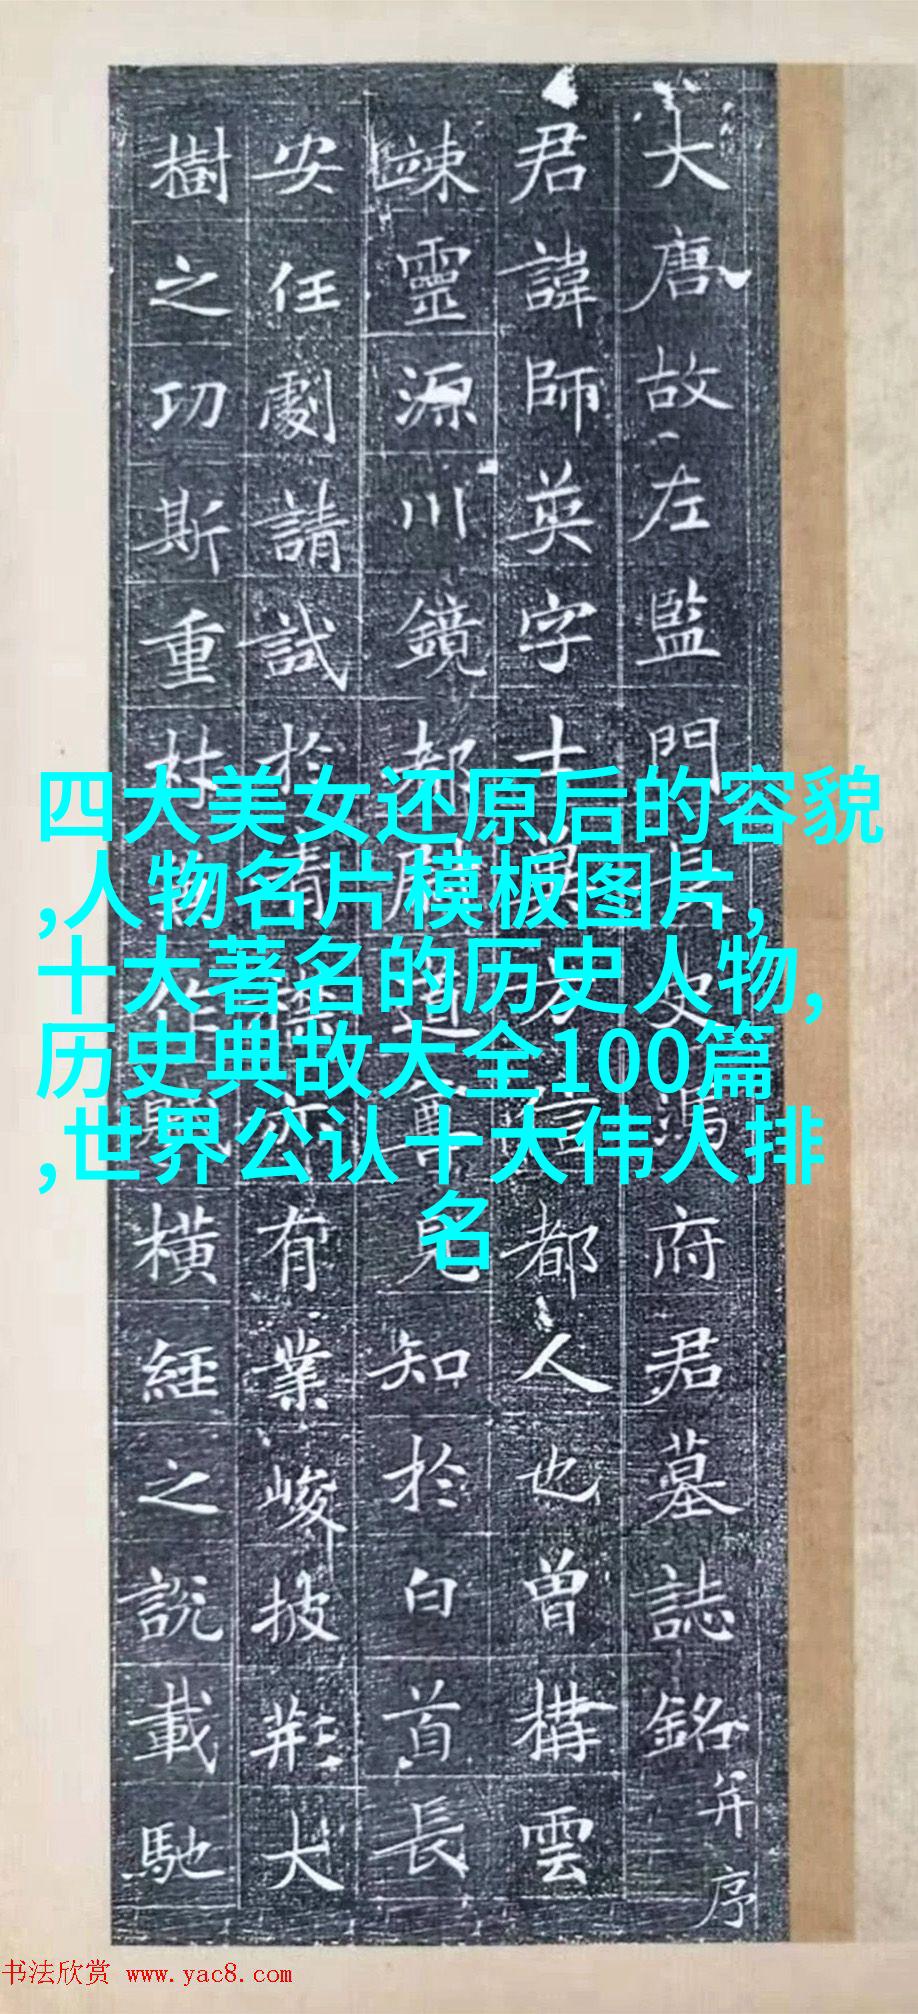 四大美女还原后的容貌
,人物名片模板图片,
十大著名的历史人物,
历史典故大全100篇
,世界公认十大伟人排
名
大唐故左監門長史馮府君墓誌銘并序
君諱師英字信都人也曾構雲
竦靈源川鏡都尉見知於白首長
安任劇請試於有業峻披荊大
樹之功斯重橫經之說載馳
书法欣赏 www.yac8.com